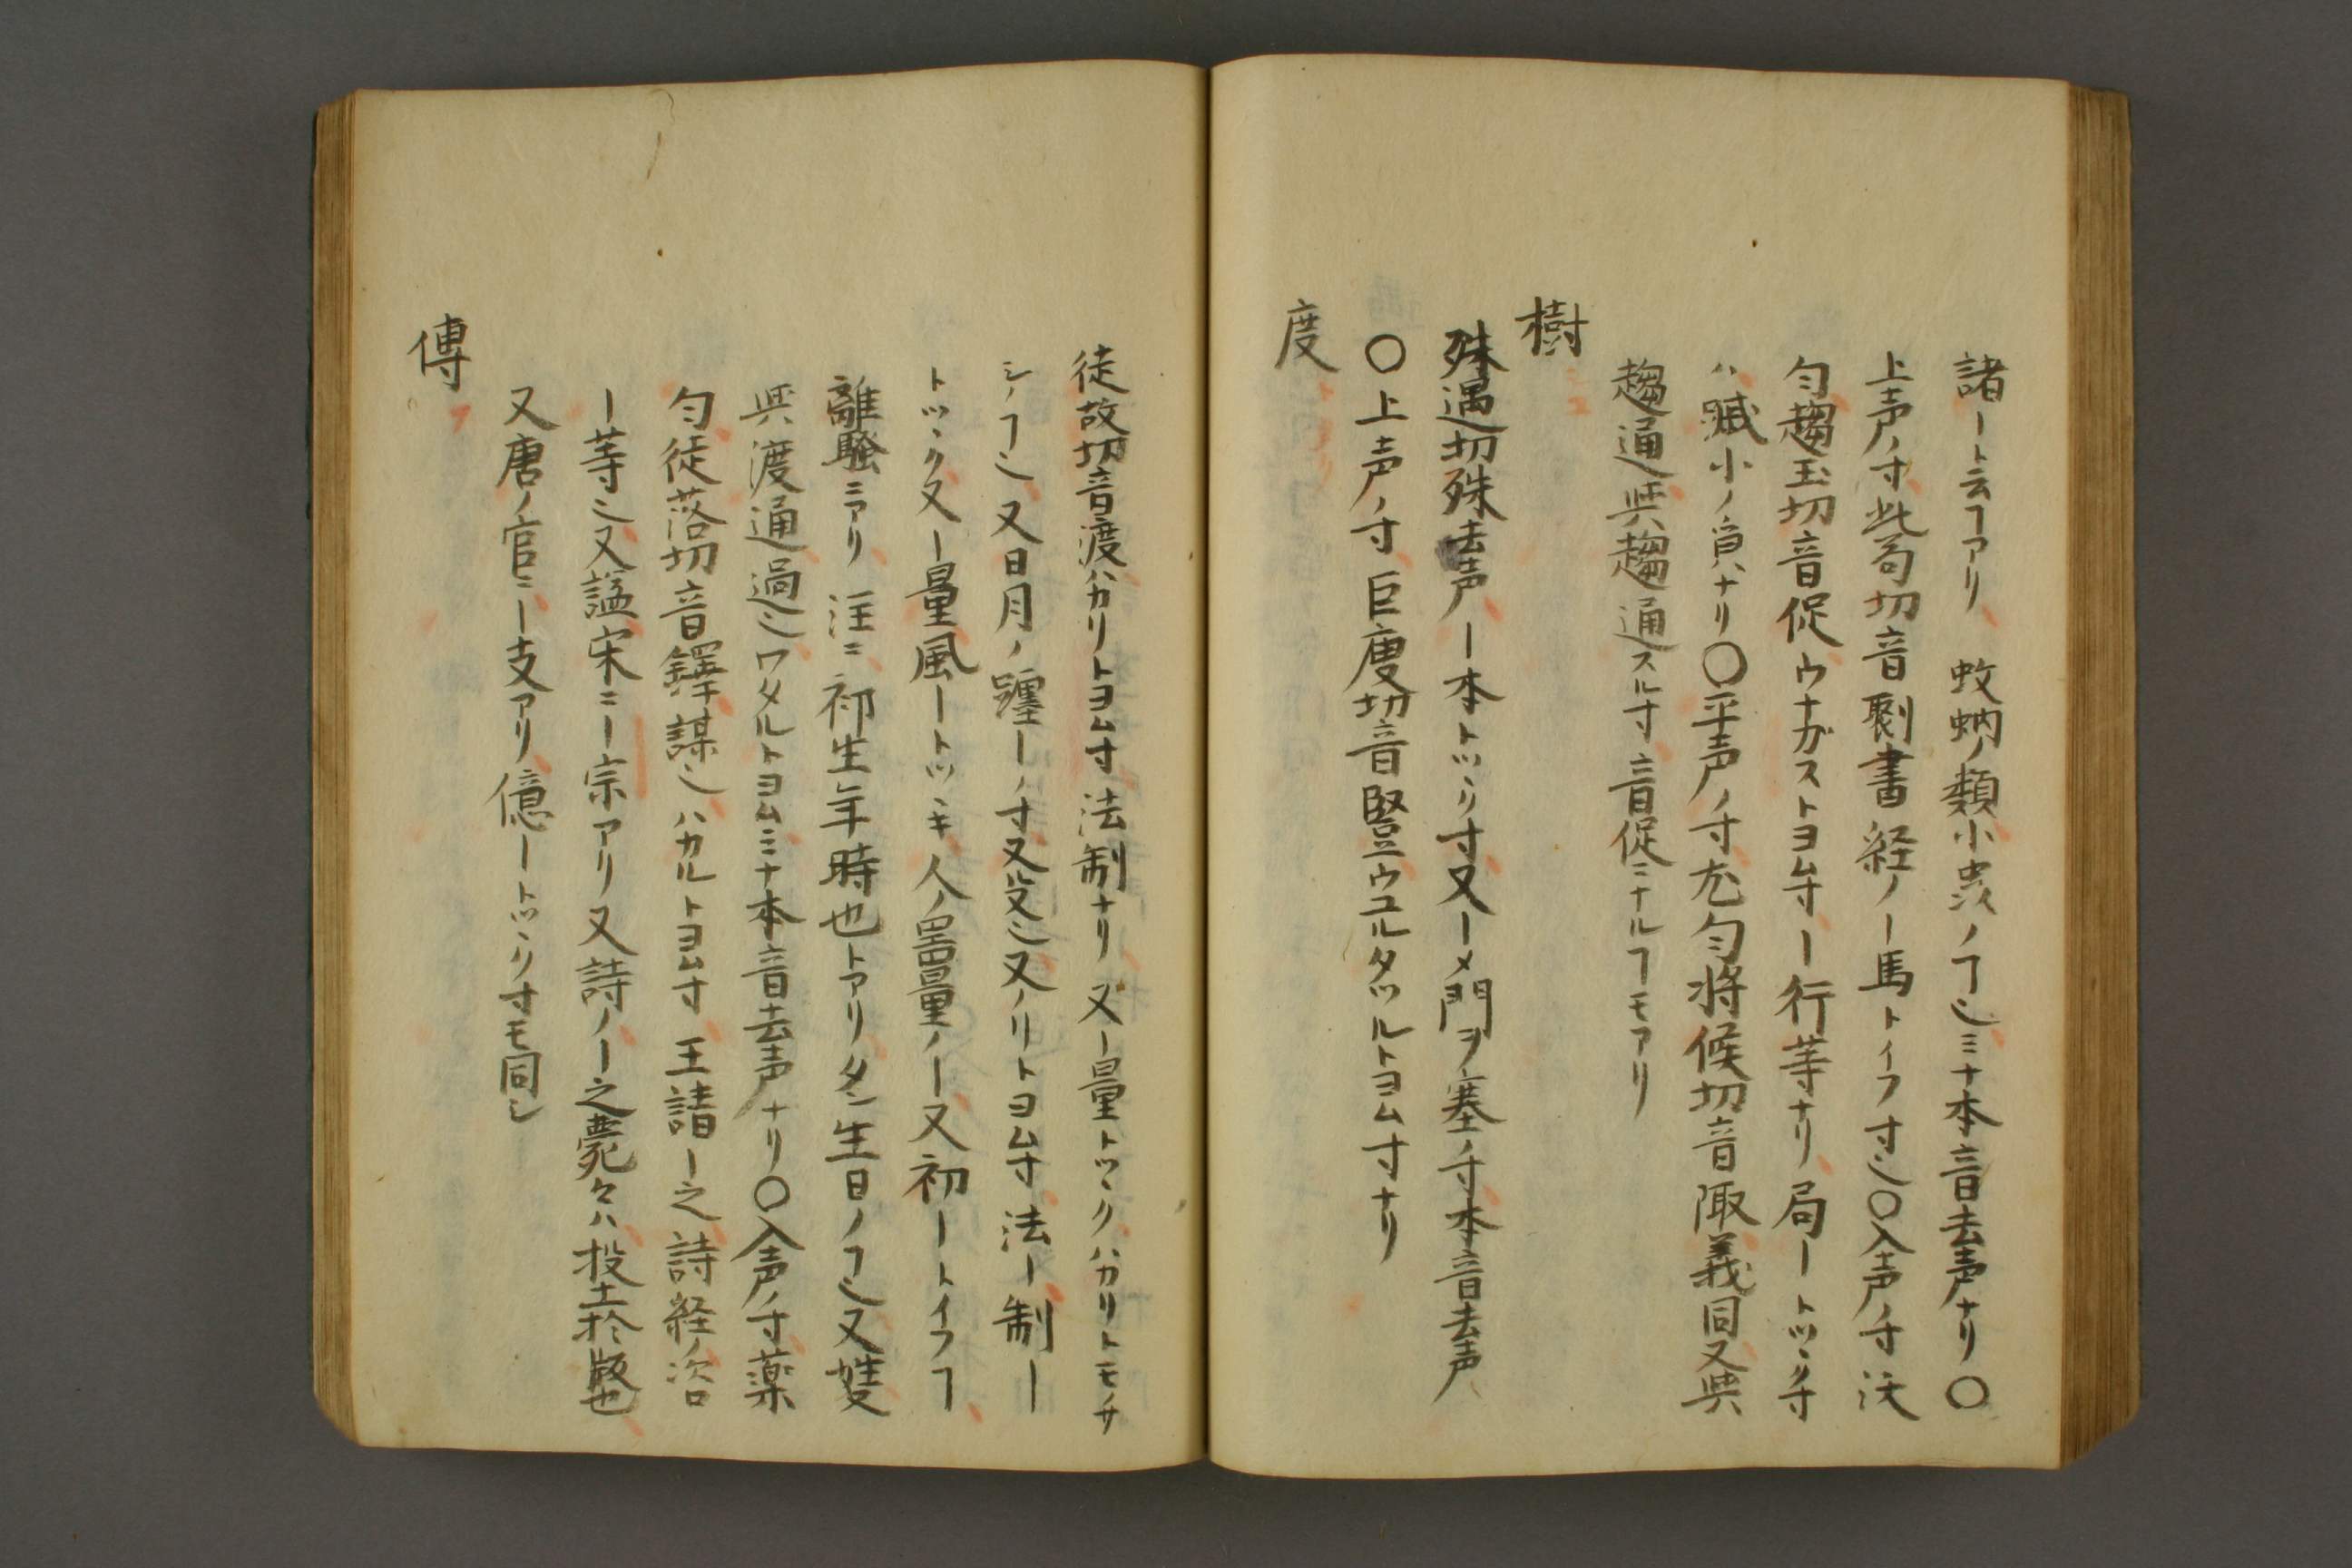 諸ート云ヿアリ 蚊蚋ノ類小虫ノヿ也ミナ本音去声ナリ〇
上声ノ寸此苟切音劉書経ノー馬トイフ寸也〇入声ノ寸沃
勻趨玉切音促ウナガストヨム寸ー行等ナリ局ートツヽク寸
ハ臧小ノ皃ナリ〇平声ノ寸尤勻将候切音陬義同又與
趨通與趨通スル寸音促ミナルヿモアリ
樹
殊遇切殊去声ー本トツヽク寸又ーメ門ヲ塞ノ寸本音去声
〇上声ノ寸巨庾切音豎ウユルタツルトヨム寸ナリ
度
徒故切音渡ハカリトヨム寸法制ナリ又ー量トツヽクハカリトモノサ
シノヿ也又日月ノ躔ーノ寸又殳也又ノリトヨム寸法ー制ー
トツヽク又ー量風ートツヽキ人ノ噐量ノー又初ートイフヿ
離騒ニアリ注ニ初生年時也トアリタン生日ノヿ也又
與渡通過也ワタルトヨムミナ本音去声ナリ〇入声ノ寸薬
勻徒落切音鐸謀也ハカルトヨム寸王請ー之詩経ノ咨
ー等也又謚宋ニー宗アリ又詩ノー之薨々ハ投土於版也
又唐ノ官ニー支アリ億ートツヽク寸モ同シ
傅